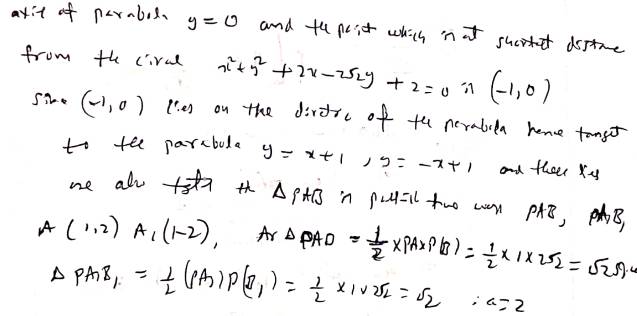 axis of parabola y = 0 and the point which is at shortest distance
from the circle x²+y²+2x-2√2y+2=0 is (-1,0)
since (-1,0) lies on the directrix of the parabola hence tangent
to the parabola y = x+1, y = -x+1 and these
we also the Δ PAB is two ways PAB, PA₁B₁
A (1,2) A₁(1-2), Ar Δ PAB = 1/2 × PA×P(B) = 1/2 × 1×2√2 = √2 sq.u
Δ PA₁B₁ = 1/2 (PA₁)P(B₁) = 1/2 × 1×2√2 = √2 ∴ a=2